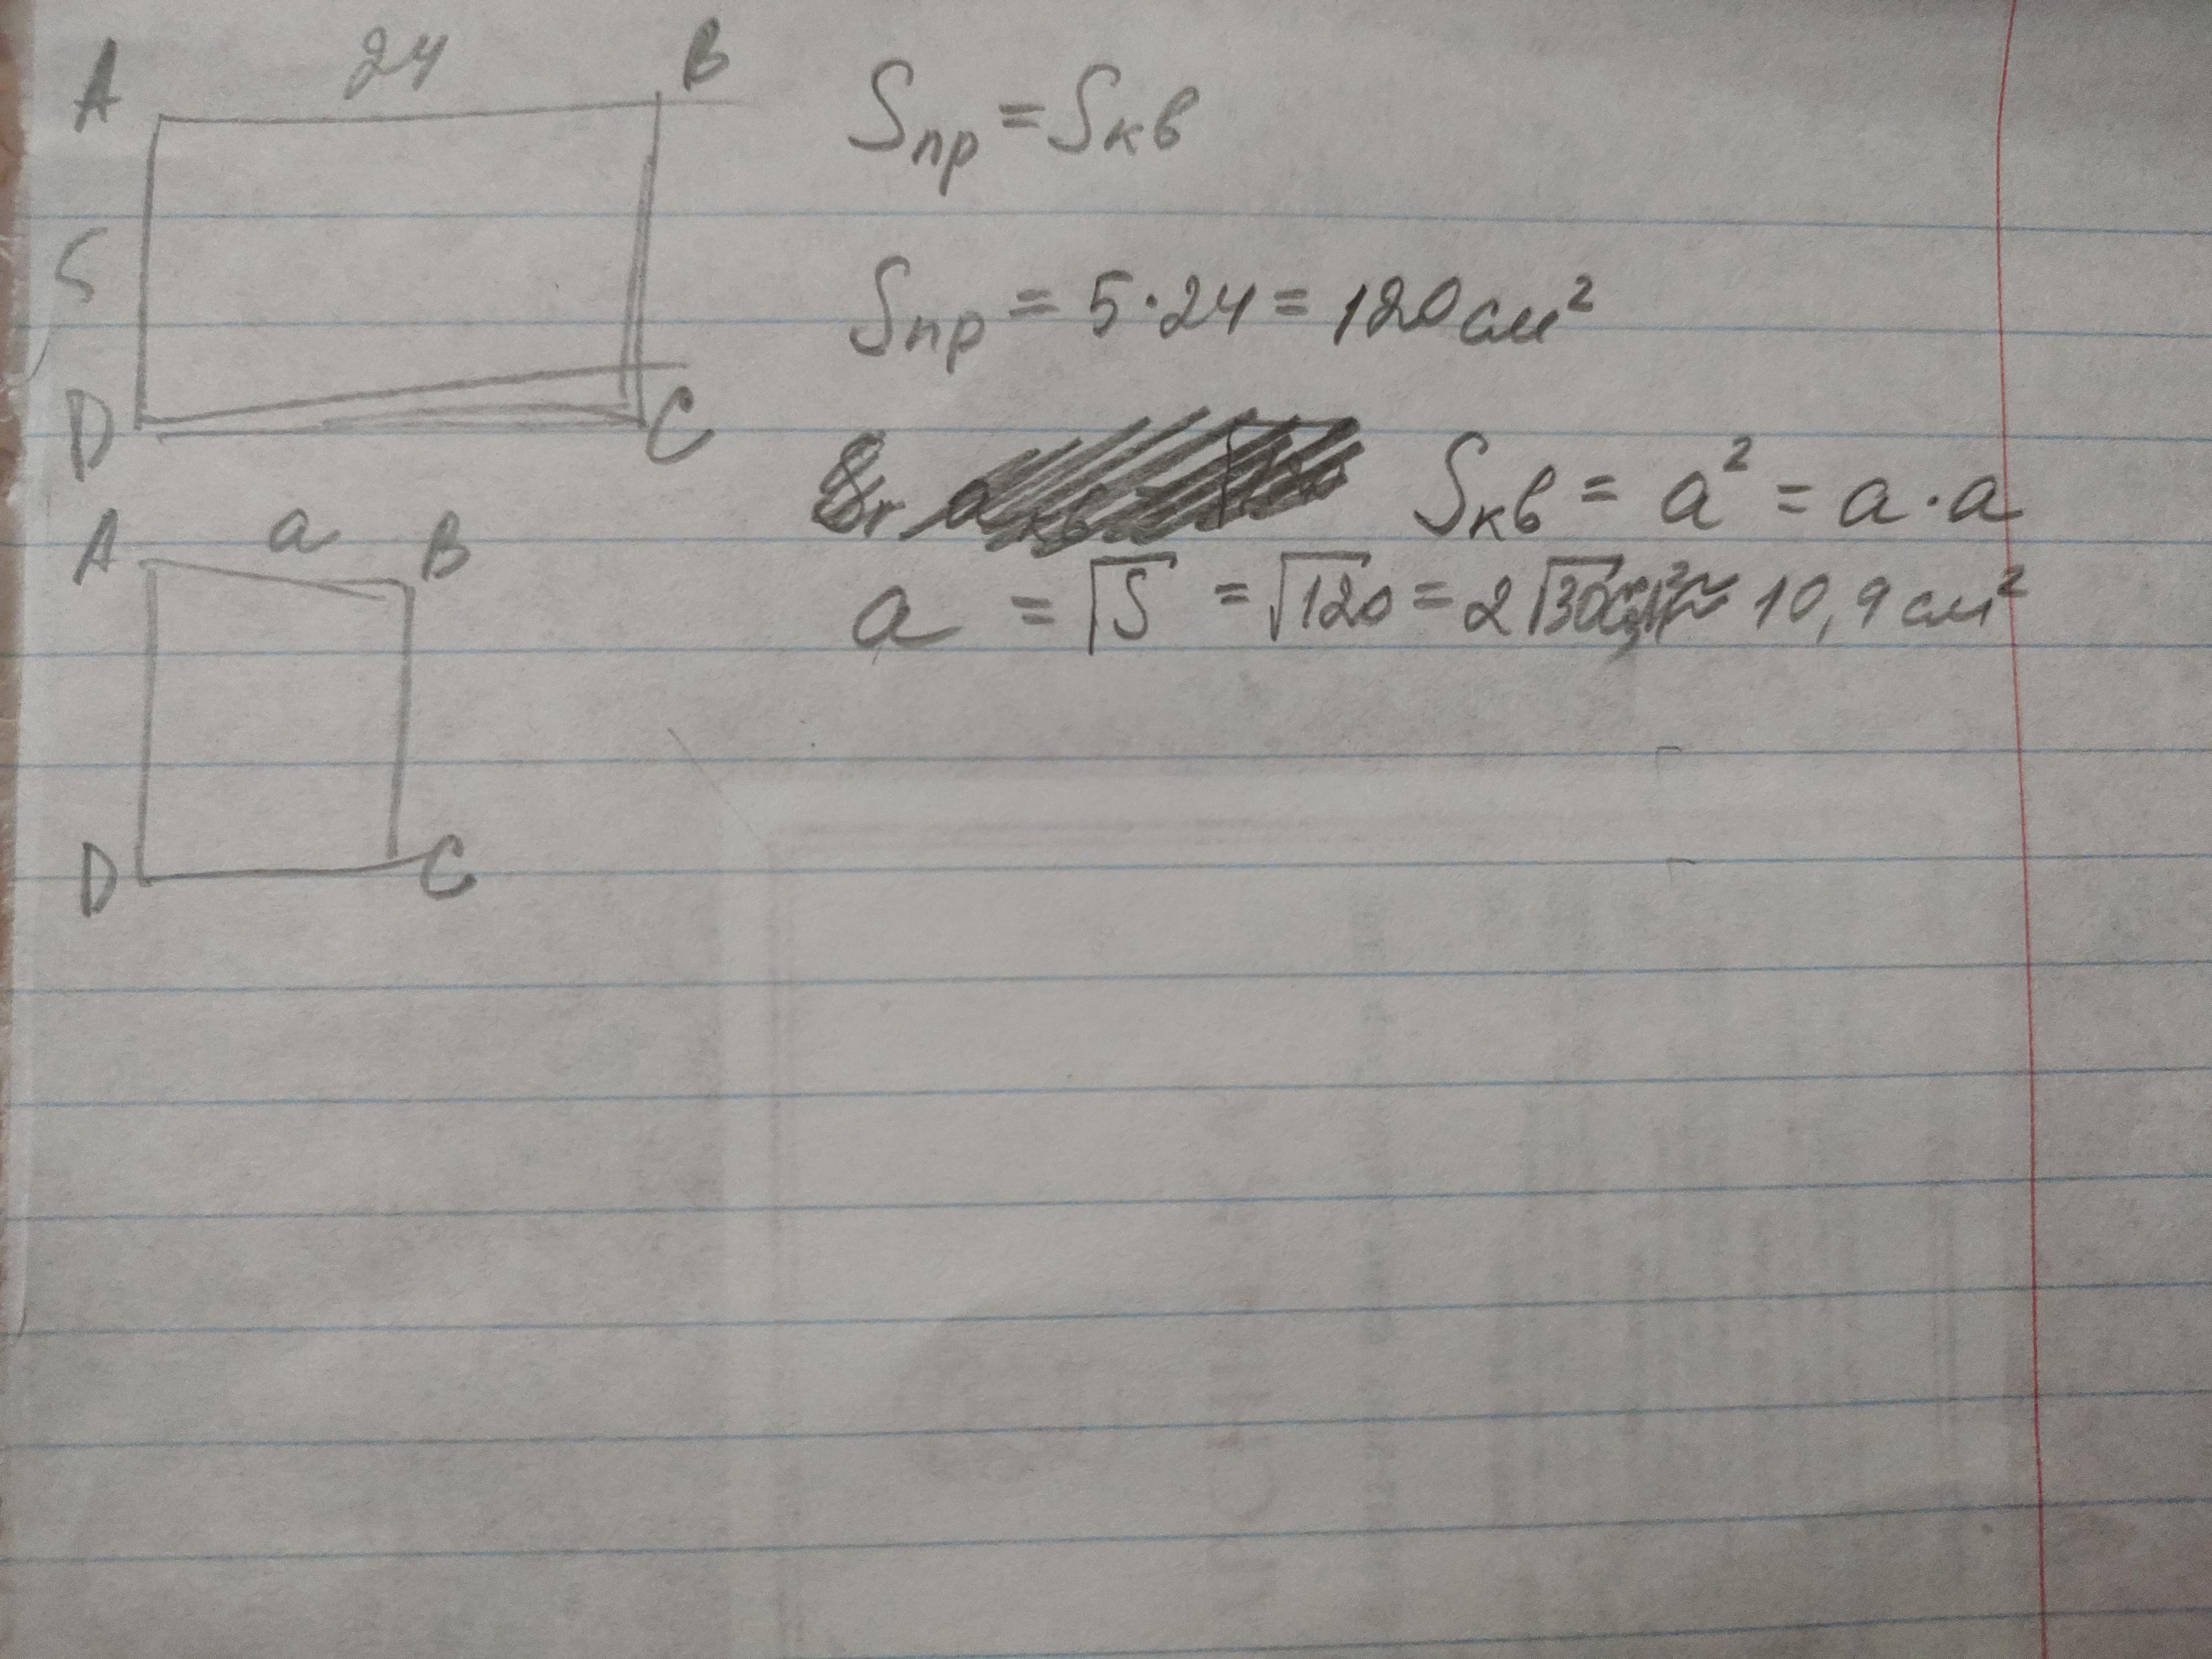 A 24 B
5
D C
A a B
D C
Sпр = Sкв
Sпр = 5·24 = 120 см²
Sкв = a² = a·a
a = √S = √120 = 2√30 ≈ 10,9 см²